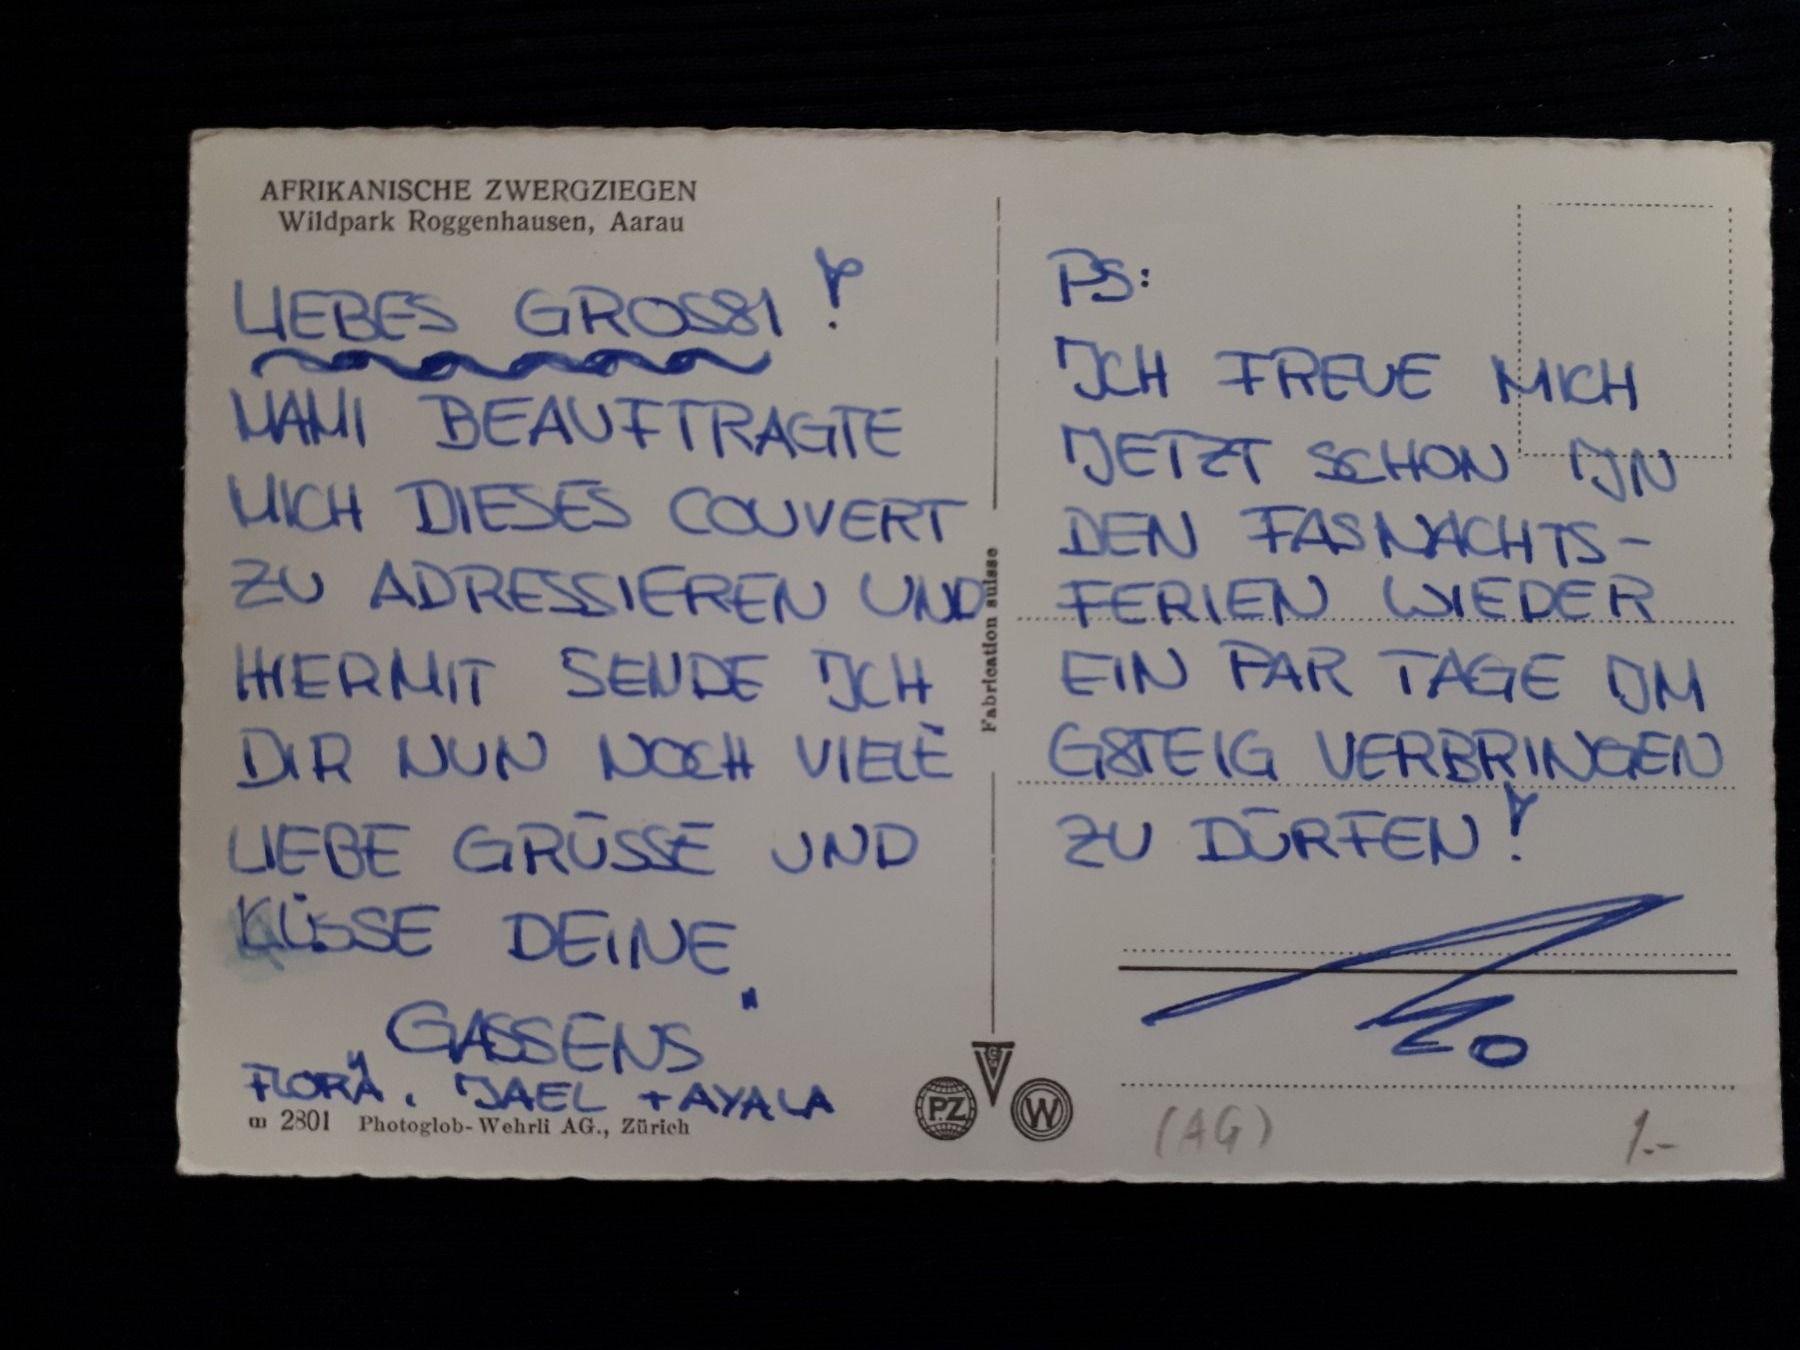 AFRIKANISCHE ZWERGZIEGEN
Wildpark Roggenhausen, Aarau
LIEBES GROSSI !
MAMI BEAUFTRAGTE
MICH DIESES COUVERT
ZU ADRESSIEREN UND
HIERMIT SENDE ICH
DIR NUN NOCH VIELE
LIEBE GRÜSSE UND
KÜSSE DEINE
GASSENS"
FLORÄ, JAEL + AYALA
m 2801 Photoglob-Wehrli AG., Zürich
Fabrication suisse
PZ
W
PS:
ICH FREUE MICH
JETZT SCHON IN
DEN FASNACHTS-
FERIEN WIEDER
EIN PAR TAGE IM
GSTEIG VERBRINGEN
ZU DÜRFEN !
(AG)
1.-